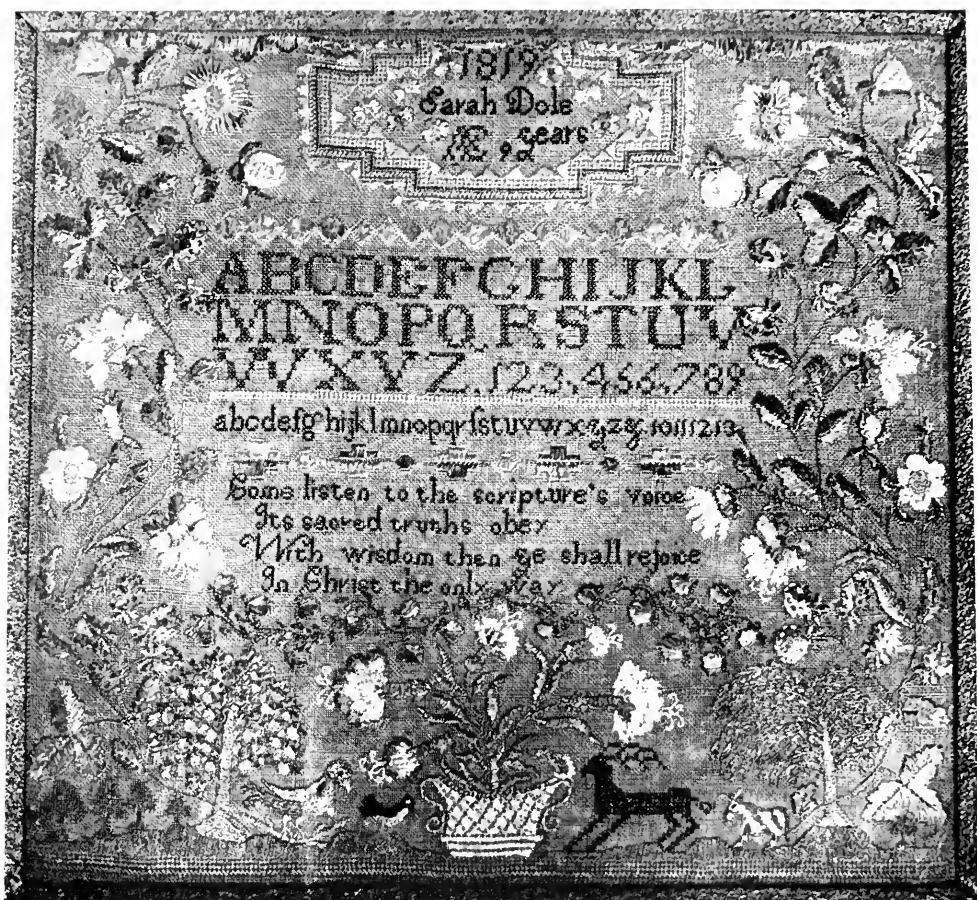 1819
Sarah Dole
Æ years
ABCDEFGHIJKL
MNOPQRSTUV
WXYZ.123.456.789
abcdefghijklmnopqrſstuvwxyz&.10111213.
Come listen to the scripture's voice
Its sacred truths obey
With wisdom then ye shall rejoice
In Christ the only Way